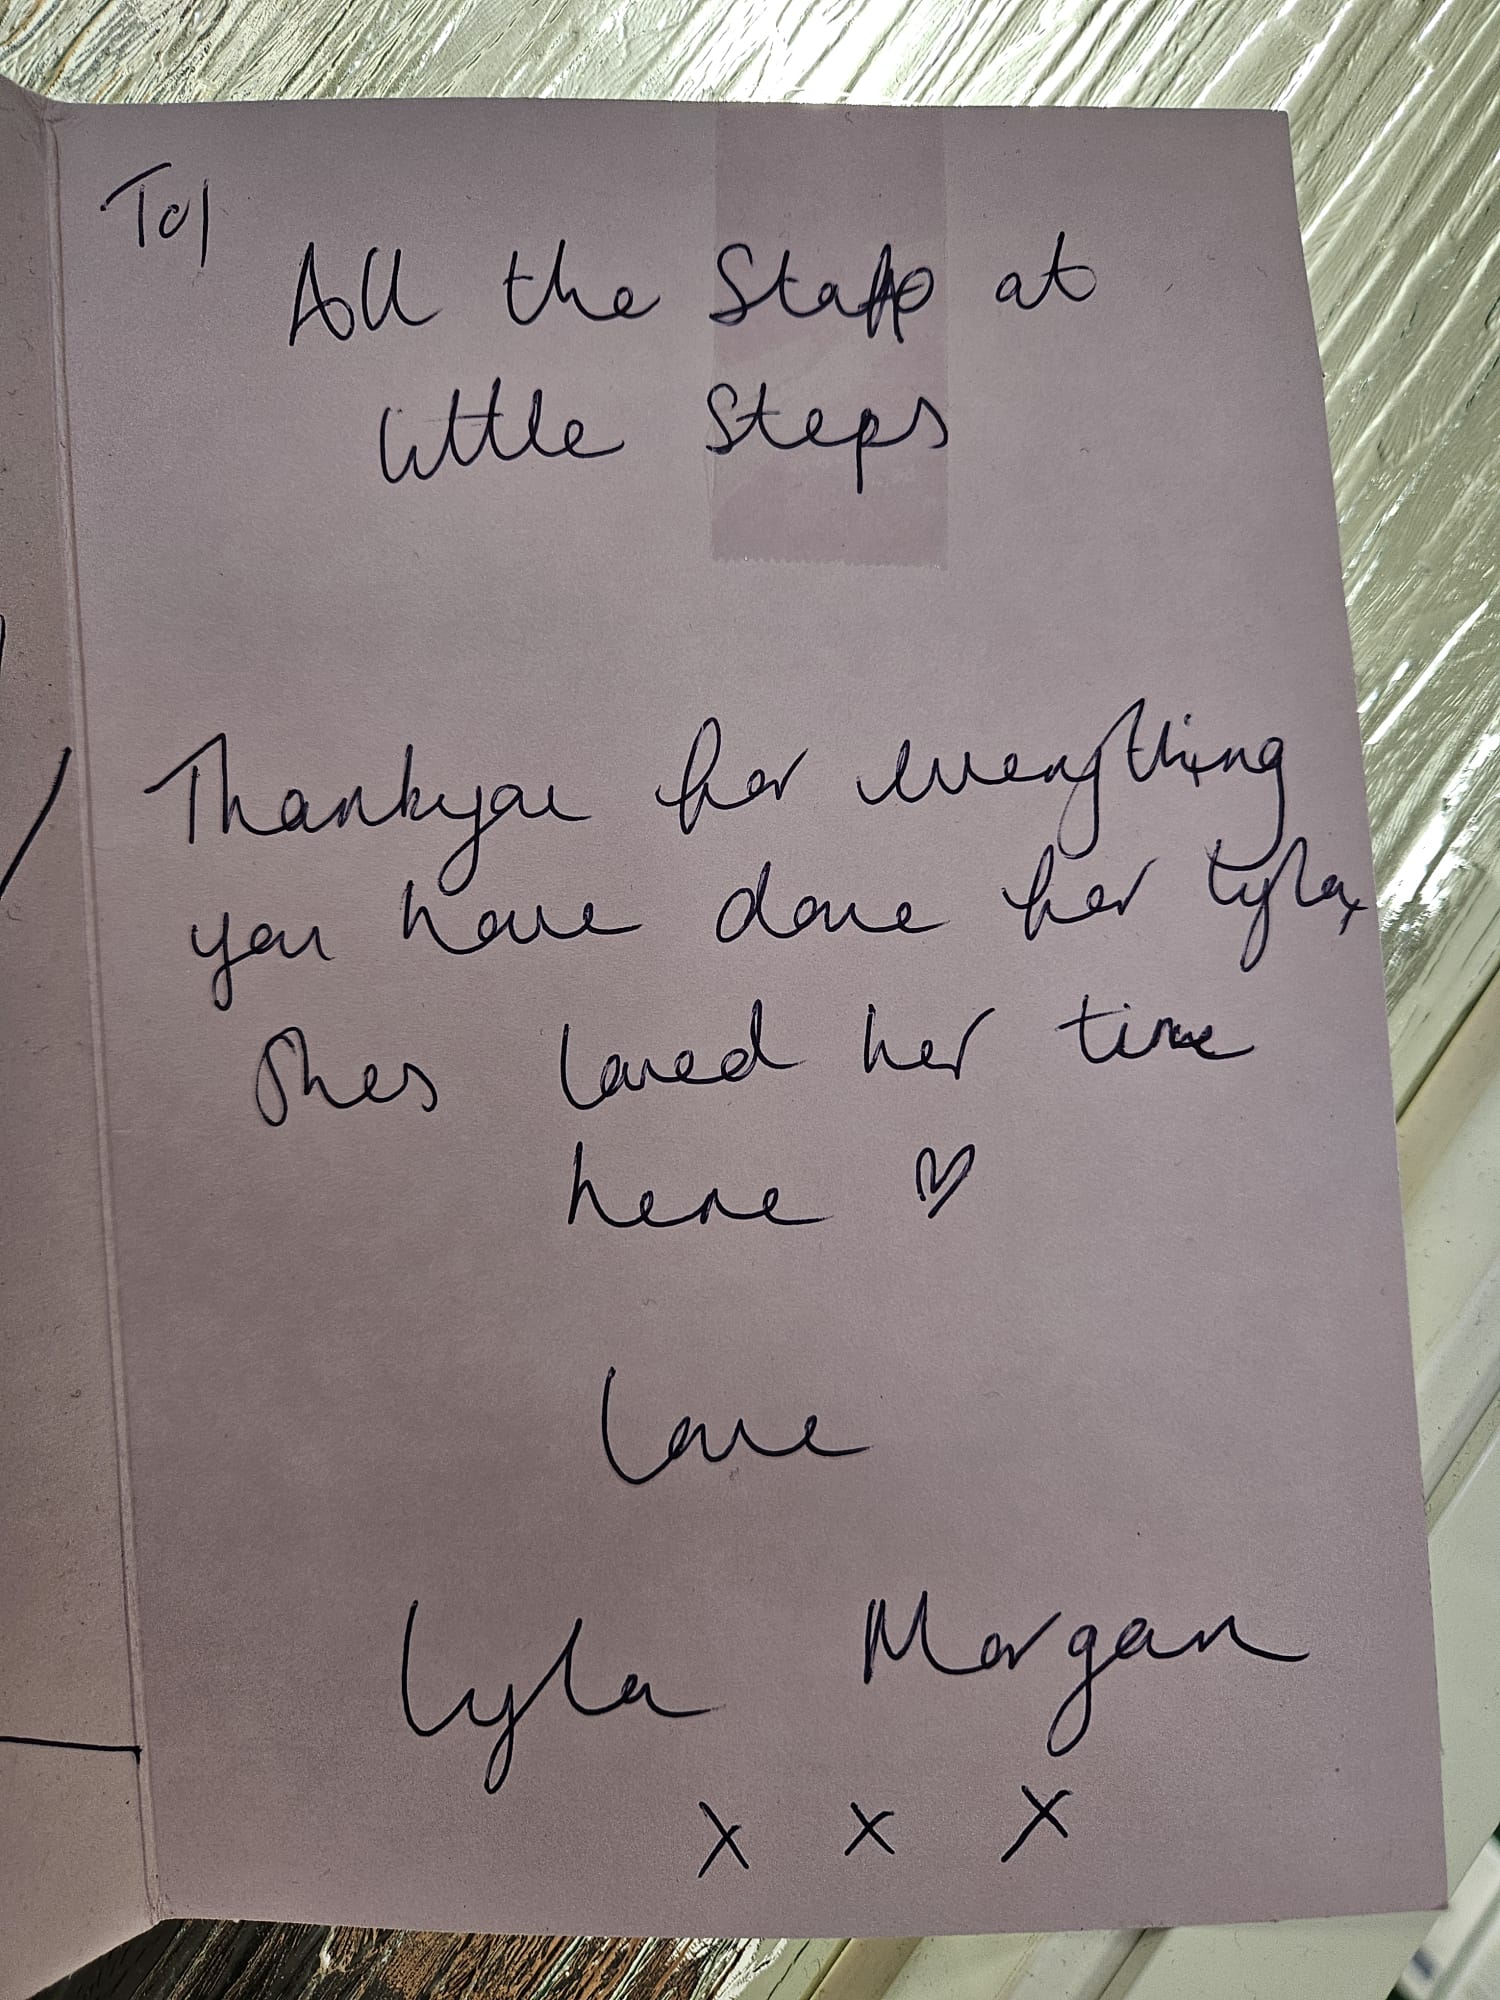 To/
All the Staff at
little steps
Thankyou for everything
you have done for Lyla,
Shes loved her time
here ♡
Love
Lyla Morgan
x x x